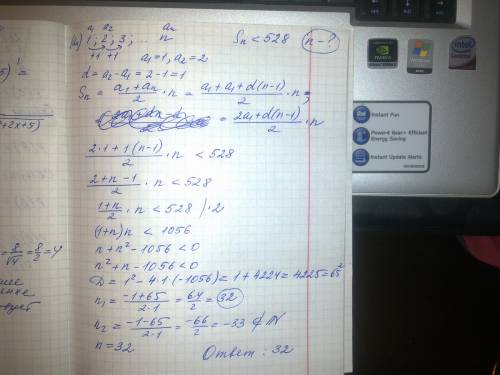 a₁ a₂ aₙ
1, 2, 3, ... n Sₙ < 528 n - ?
+1 +1 a₁ = 1, a₂ = 2
d = a₂ - a₁ = 2 - 1 = 1
Sₙ = (a₁ + aₙ)/2 · n = (a₁ + a₁ + d(n-1))/2 · n =
= (2a₁ + d(n-1))/2 · n
(2·1 + 1(n-1))/2 · n < 528
(2 + n - 1)/2 · n < 528
(1 + n)/2 · n < 528 | · 2
(1+n)n < 1056
n + n² - 1056 < 0
n² + n - 1056 < 0
D = 1² - 4·1·(-1056) = 1 + 4224 = 4225 = 65²
n₁ = (-1 + 65)/(2·1) = 64/2 = 32
n₂ = (-1 - 65)/(2·1) = -66/2 = -33 ∉ N
n = 32 Ответ: 32
+2x+5)
= 8/√4 = 8/2 = 4
NVIDIA
Windows
intel
Lenovo
Instant Fun
Power4 Gear+ Efficient
Energy Saving
Instant Update Alerts